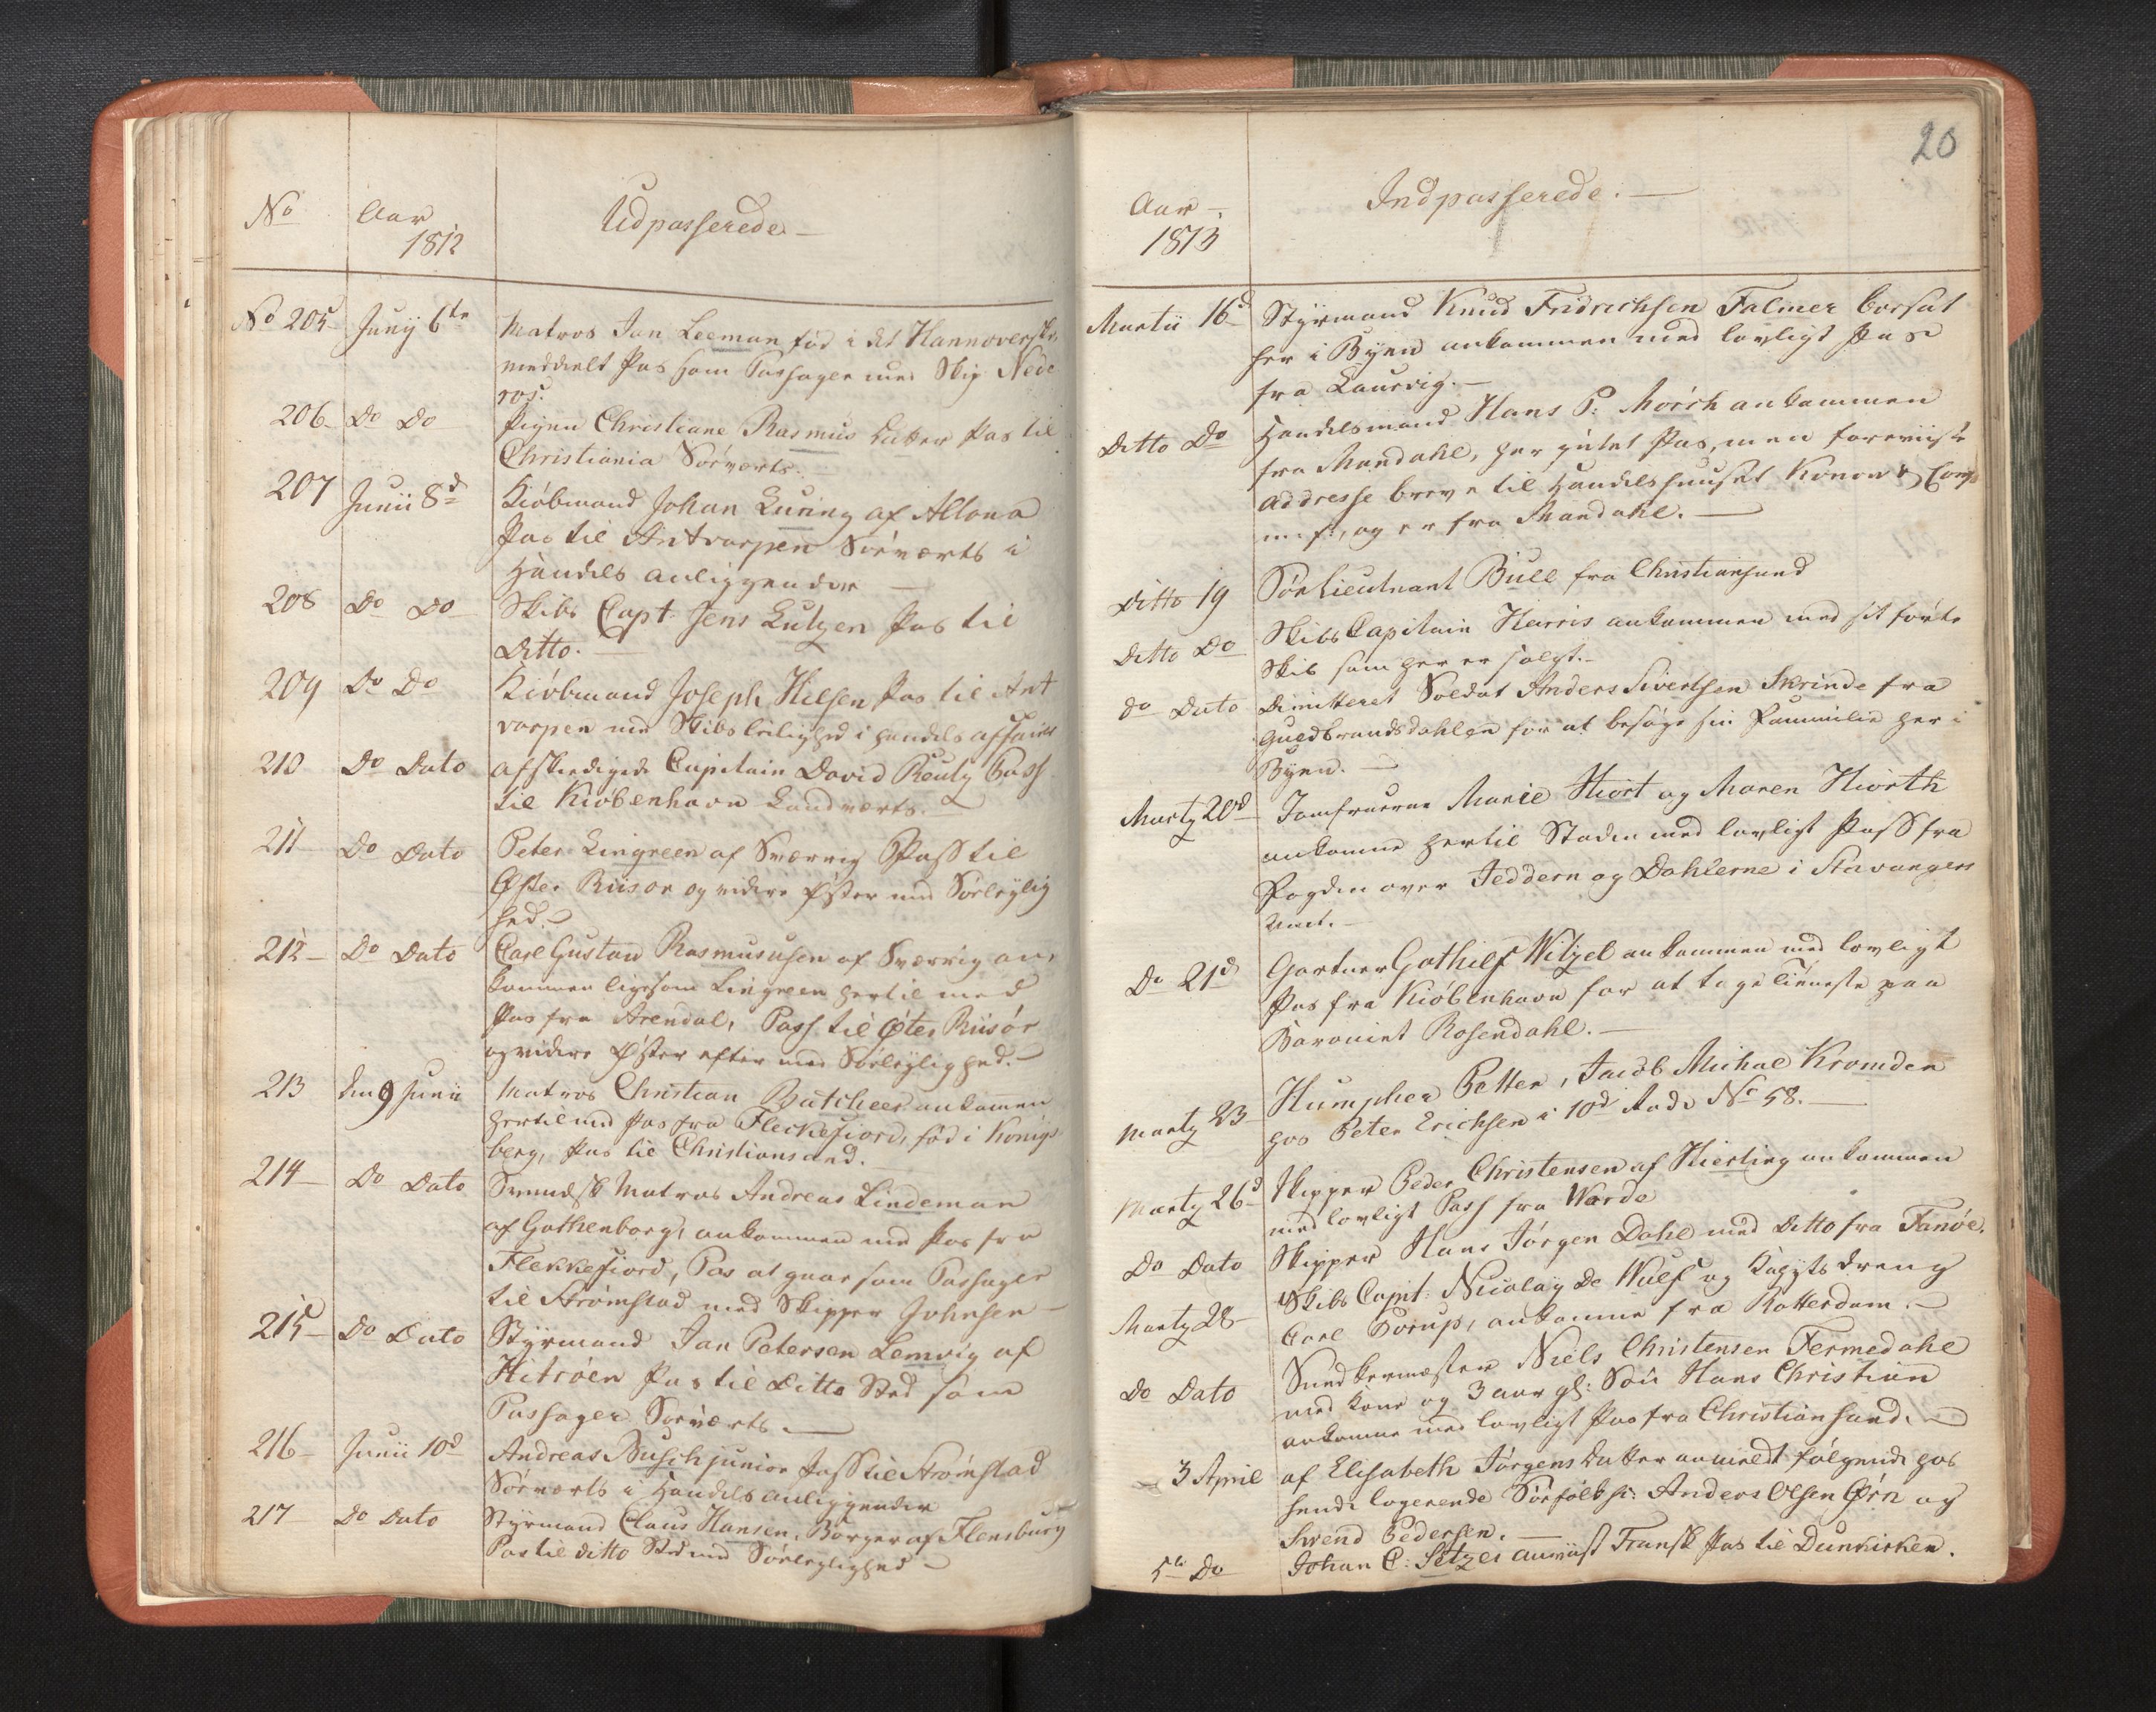 No Aar Udpasserede
1812
No 205 Junij 6te Matros Jan Leeman fød i det Hannoverske,
meddeelt Pas som Passager med Skip Nede
ros.
206 Do Do Pigen Christiane Rasmus Datter Pas til
Christiania Söeværts.
207 Junii 8d Kiöbmand Johan Luring af Altona
Pas til Antvarpen Söeværts i
Handels anliggender
208 Do Do Skibs Capt. Jens Lutzen Pas til
Ditto.
209 Do Do Kiöbmand Joseph Hilsen Pas til Ant
varpen med Skibsleilighed i handels affairer
210 Do Dato afskedigede Capitain David Reutz Pass
til Kiöbenhavn Landværts.
211 Do Dato Peter Lingreen af Sværrig Pass til
Öster Riisör og videre Öster med Söeleylig
hed.
212 Do Dato Carl Gustav Rasmususen af Sværrig an,
kommen ligesom Lingreen hertil med
Pas fra Arendal, Pass til Öster Riisör
og videre Öster efter med Söeleylighed.
213 den 9 Junii Matros Christian Butcher ankommen
hertil med Pas fra Fleckefiord, fød i Konigs
berg, Pas til Christiansand.
214 Do Dato Svendsk Matros Andreas Lindeman
af Gothenborg, ankommen med Pas fra
Flekkefiord, Pas at gaae som Passager
til Strömstad med Skipper Johnsen
215 Do Dato Styrmand Jan Petersen Lemvig af
Hitröen Pas til Ditto Sted som
Passager Söeværts.
216 Junii 10d Andreas Busch junior Pass til Strömstad
Söeværts i Handels anliggender
217 Do Dato Styrmand Claus Hansen, Borger af Flensburg
Pas til ditto Sted med Söeleylighed
20
Aar Indpasserede.
1813
Martii 16d Styrmand Knud Fridrichsen Falmer borsat
her i Byen ankommen med lovligt Pas
fra Laurvig.
Ditto Do Handelsmand Hans P: Mörch ankommen
fra Mandahl, har intet Pas, men foreviiste
addresse breve til Handelshuuset Konow & Comp
, og er fra Mandahl.
Ditto 19 Söe Lieutnant Bull fra Christiansund
Ditto Do Skibs Capitain Harris ankommen med sit förte
Skib som her er solgt.
do Dato Dimitteret Soldat Anders Sivertsen Skrinde fra
Guldbrandsdahlen for at besöge sin Familie her i
Byen.
Marty 20d Jomfruerne Marie Hiort og Maren Hiorth
ankomne hertil Staden med lovligt Pass fra
Fogden over Jeddern og Dahlerne i Stavangers
Amt.
Do 21d Gartner Gothilf Witzel ankommen med lovligt
Pas fra Kiöbenhavn for at tage tieneste paa
Baroniet Rosendahl.
Marty 23 Humpher Petter, Jacob Michal Kromden
hos Peter Erichsen i 10d Rode No 58.
Marty 26d Skipper Peder Christensen af Hierting ankommen
med lovligt Pass fra Warde
Do Dato Skipper Hans Jörgen Dahl med Ditto fra Fanöe.
Marty 28 Skibs Capit: Nicolay De Wulf og Kahyts dreng
Carl Borup, ankomne fra Rotterdam.
Do Dato Niels Christensen Fermedahl
med Kone og 3 aar gl: Sön Hans Christian
ankomne med lovligt Pas fra Christiansund.
3 April af Elisabeth Jörgens Datter anmeldt fölgende hos
hende logerende Söefolk s: Anders Olsen Örn og
Swend Pedersen.
5te Do Johan C: Setzer anviist Fransk Pas til Dunkirken.